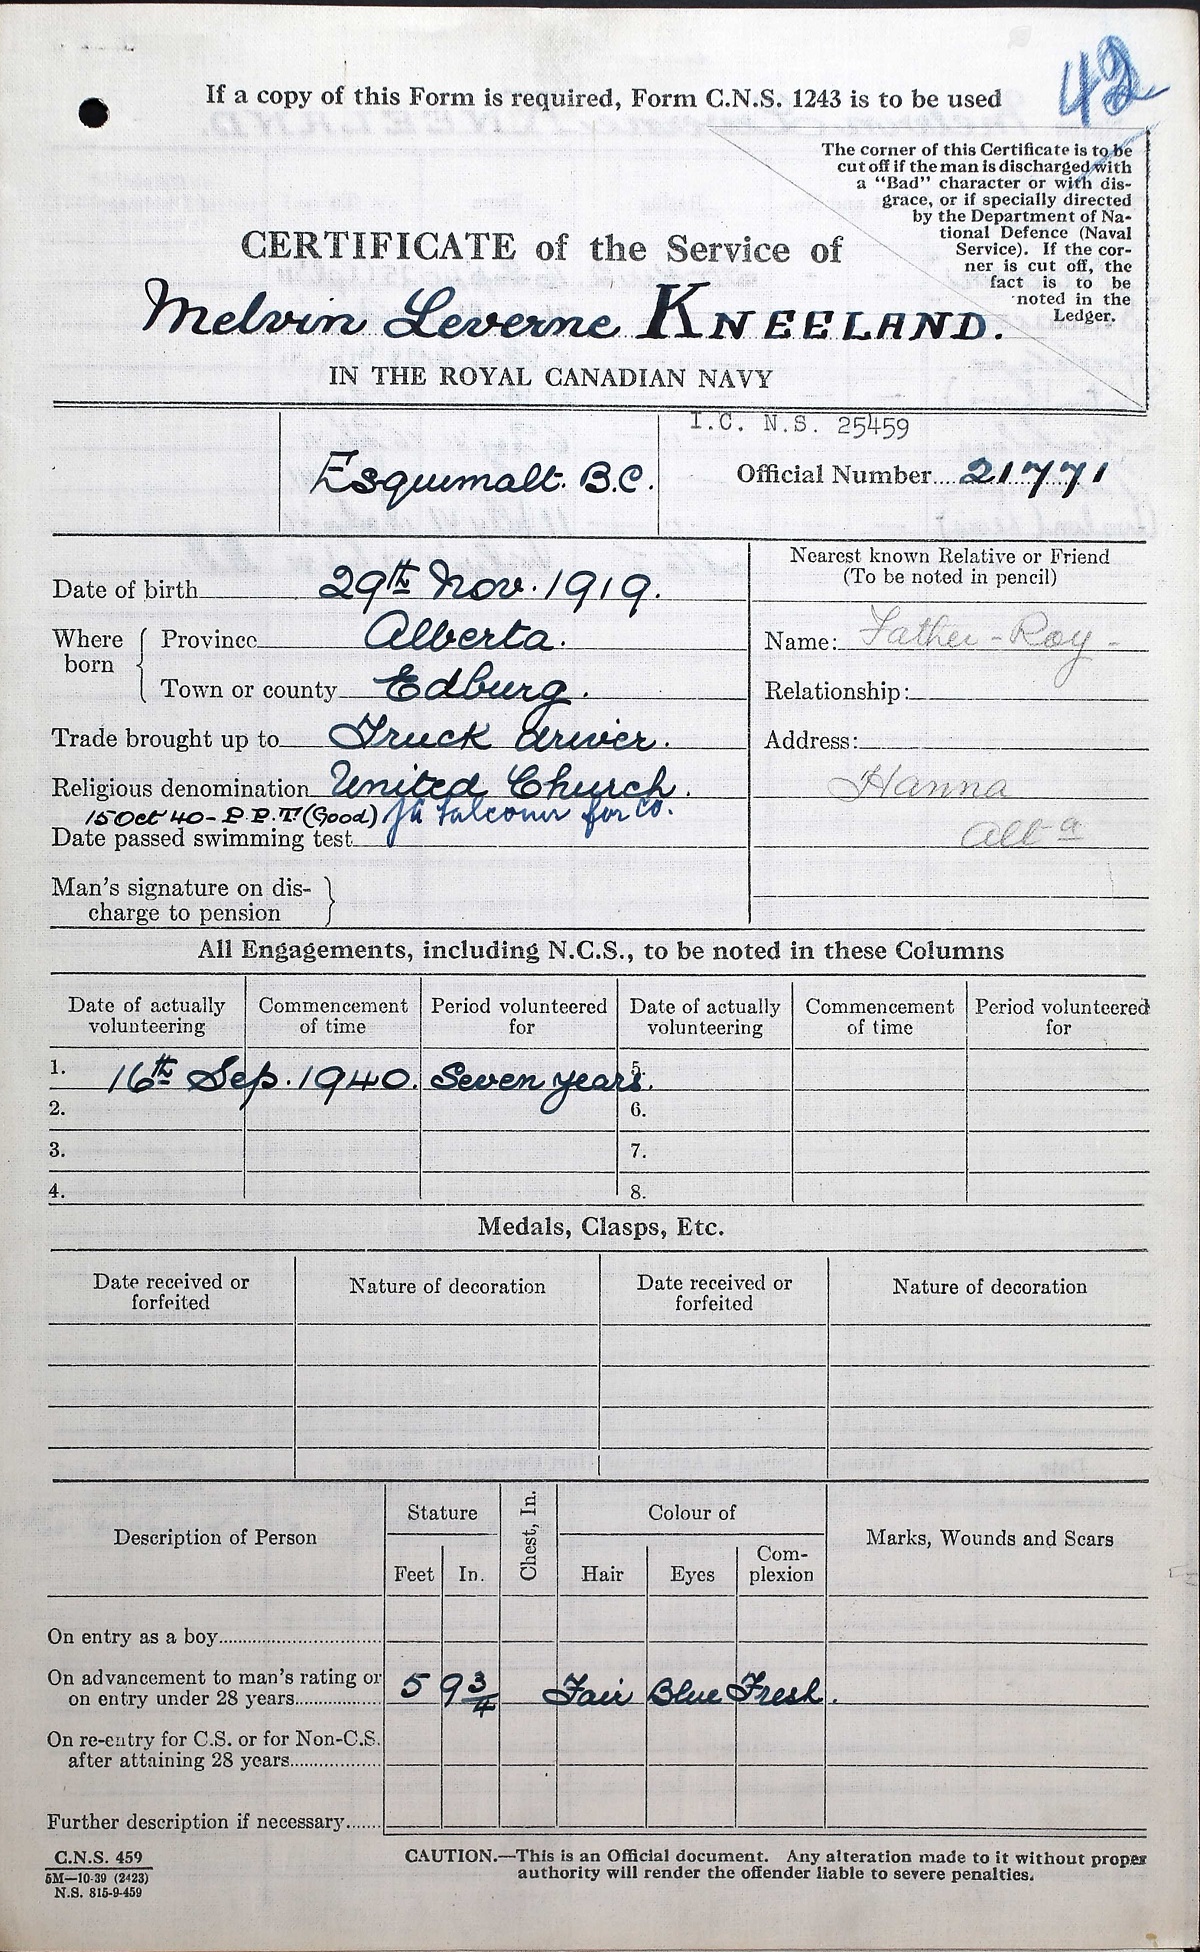 42
If a copy of this Form is required, Form C.N.S. 1243 is to be used
The corner of this Certificate is to be
cut off if the man is discharged with
a "Bad" character or with dis-
grace, or if specially directed
by the Department of Na-
tional Defence (Naval
Service). If the cor-
ner is cut off, the
fact is to be
noted in the
Ledger.
CERTIFICATE of the Service of
Melvin Leverne KNEELAND.
IN THE ROYAL CANADIAN NAVY
I.C. N.S. 25459
Esquimalt. B.C.
Official Number 21771
Date of birth 29th Nov. 1919.
Where born
Province Alberta.
Town or county Edburg.
Trade brought up to Truck driver.
Religious denomination United Church.
15 Oct 40 - P.P.T (Good) Falconer for CO.
Date passed swimming test
Man's signature on dis-
charge to pension
Nearest known Relative or Friend
(To be noted in pencil)
Name: Father - Roy -
Relationship:
Address:
Hanna
Alta
All Engagements, including N.C.S., to be noted in these Columns
Date of actually volunteering Commencement of time Period volunteered for Date of actually volunteering Commencement of time Period volunteered for
1. 16th Sep. 1940. Seven years. 5.
2. 6.
3. 7.
4. 8.
Medals, Clasps, Etc.
Date received or forfeited Nature of decoration Date received or forfeited Nature of decoration
Description of Person Stature Chest, In. Colour of Marks, Wounds and Scars
Feet In. Hair Eyes Com-plexion
On entry as a boy
On advancement to man's rating or
on entry under 28 years 5 9 3/4 Fair Blue Fresh.
On re-entry for C.S. or for Non-C.S.
after attaining 28 years
Further description if necessary
C.N.S. 459
5M—10-39 (2423)
N.S. 815-9-459
CAUTION.—This is an Official document. Any alteration made to it without proper
authority will render the offender liable to severe penalties.